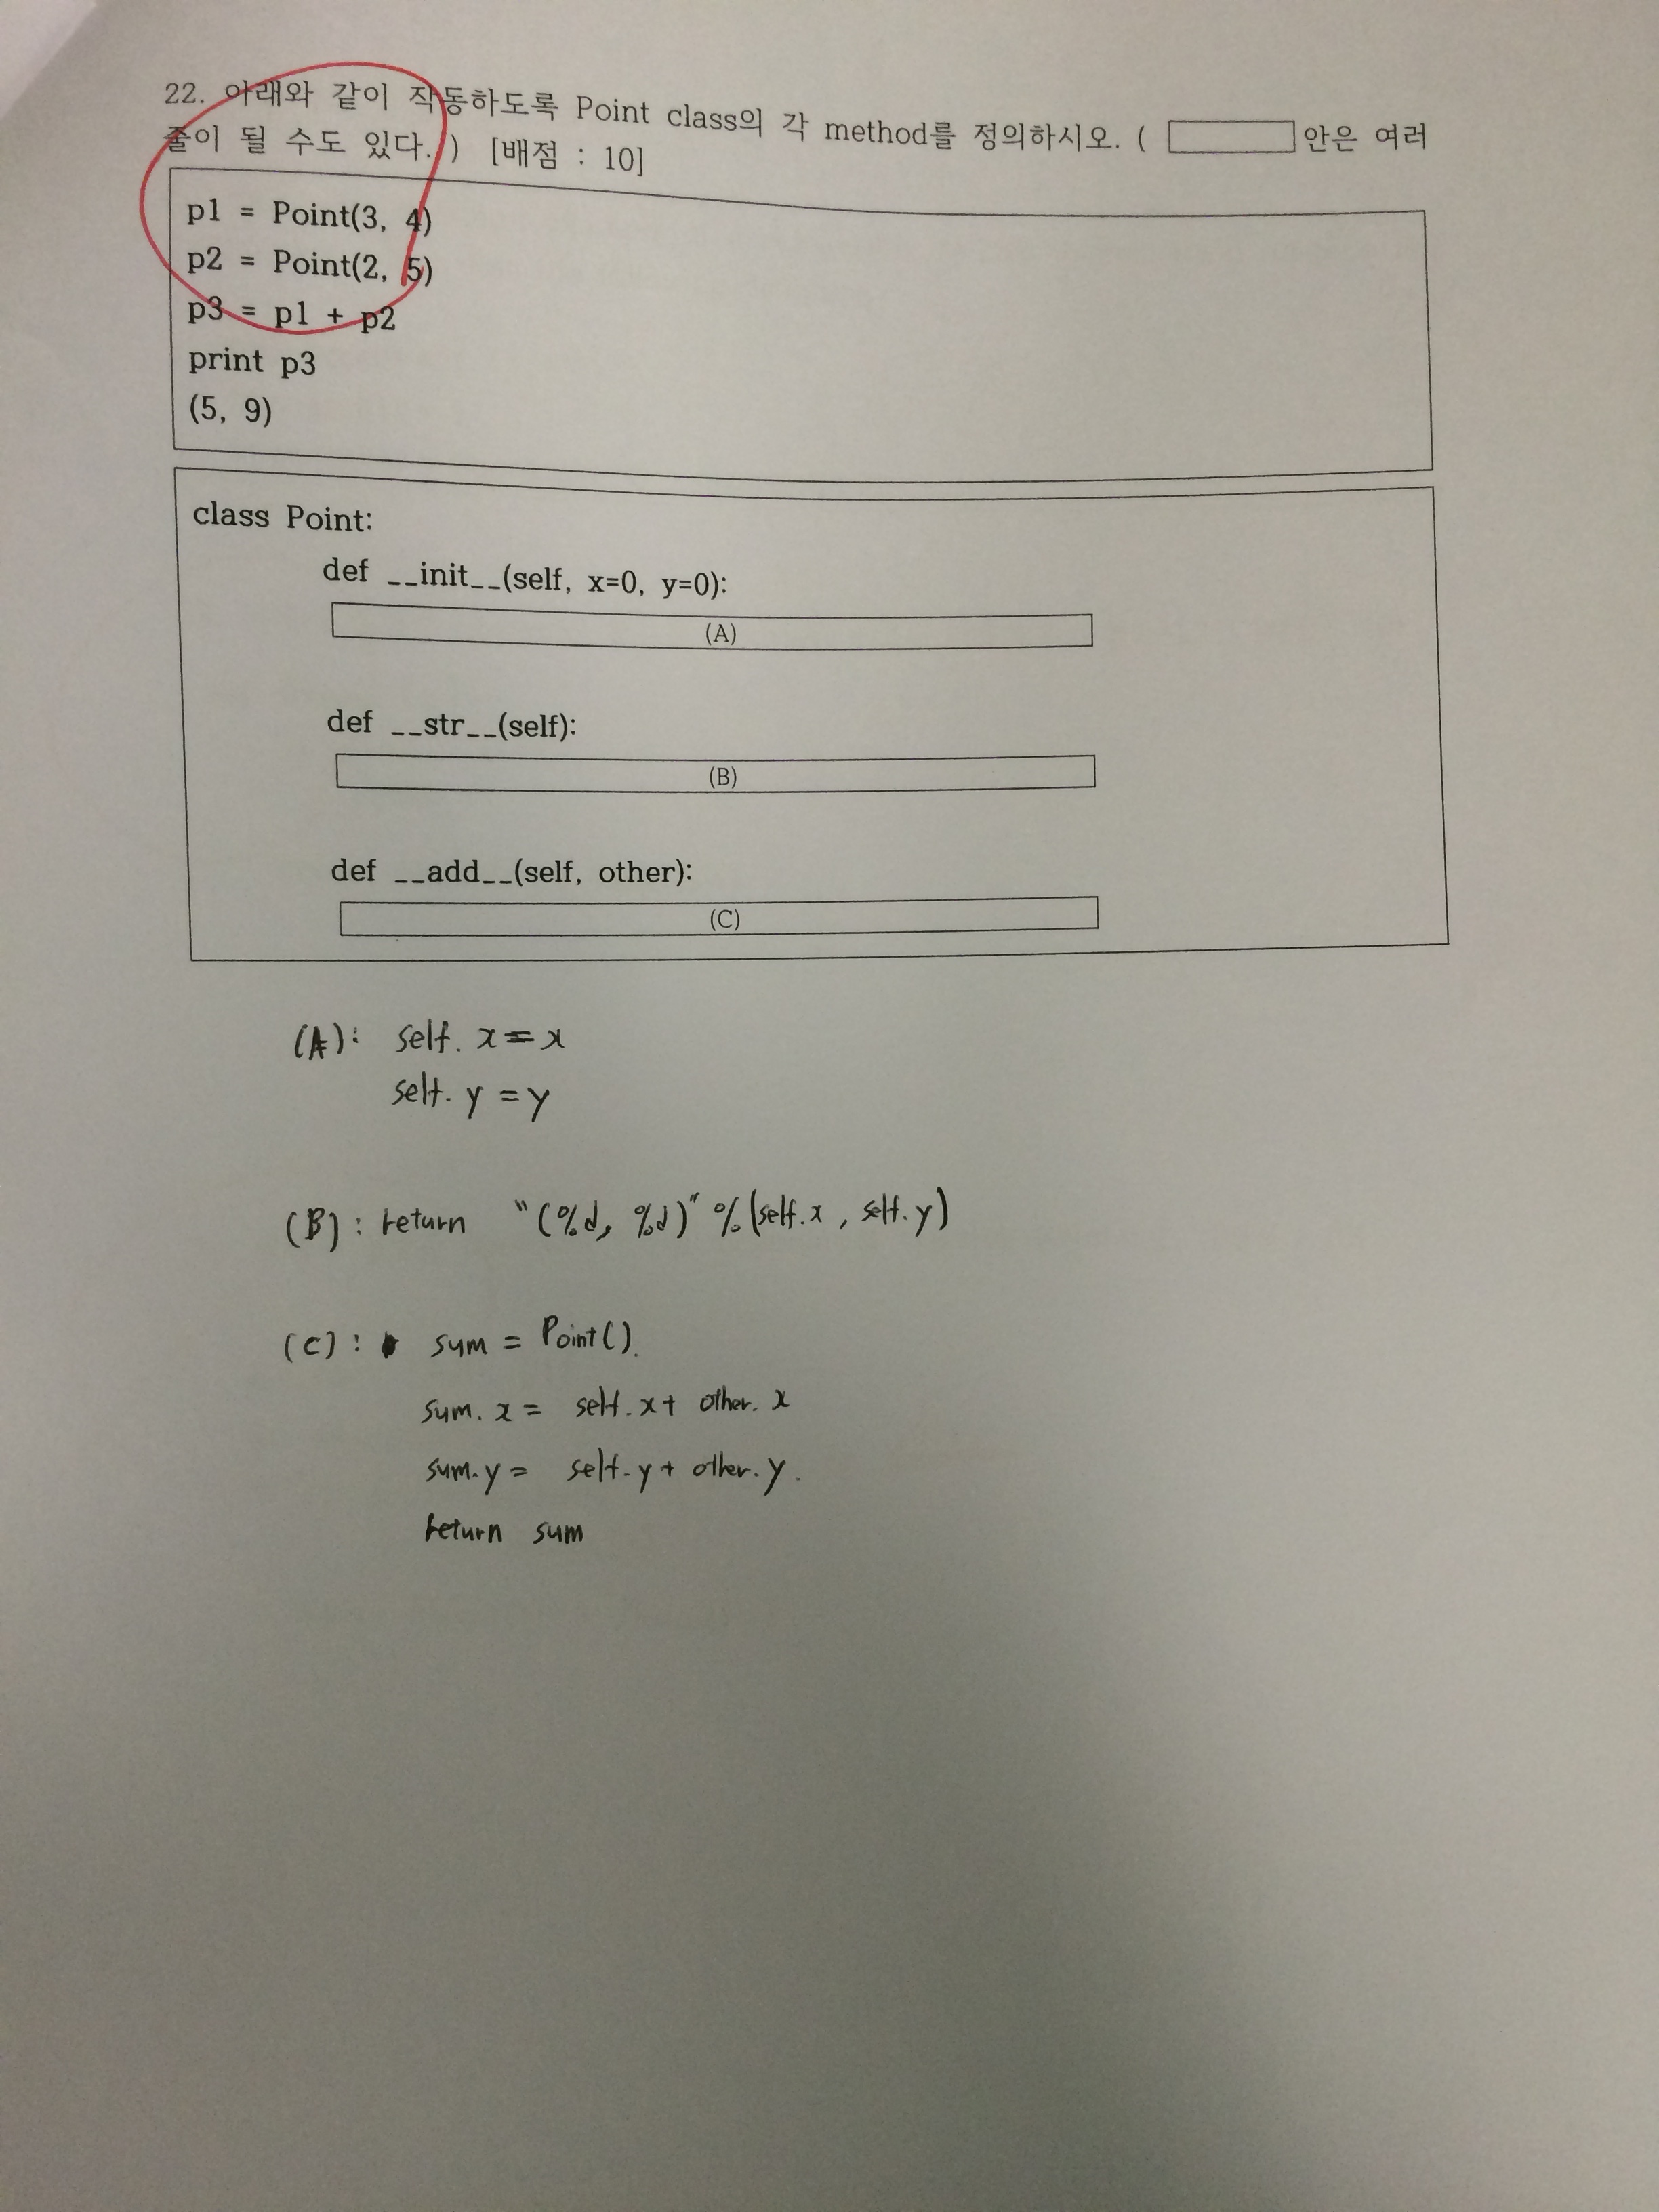 22. 아래와 같이 작동하도록 Point class의 각 method를 정의하시오. ( 안은 여러
줄이 될 수도 있다.) [배점 : 10]
p1 = Point(3, 4)
p2 = Point(2, 5)
p3 = p1 + p2
print p3
(5, 9)
class Point:
def __init__(self, x=0, y=0):
(A)
def __str__(self):
(B)
def __add__(self, other):
(C)
(A): self. x = x
self. y = y
(B) : return "(%d, %d)" % (self.x , self.y)
(C) : sum = Point().
sum. x = self.x + other. x
sum.y = self.y + other.y.
return sum